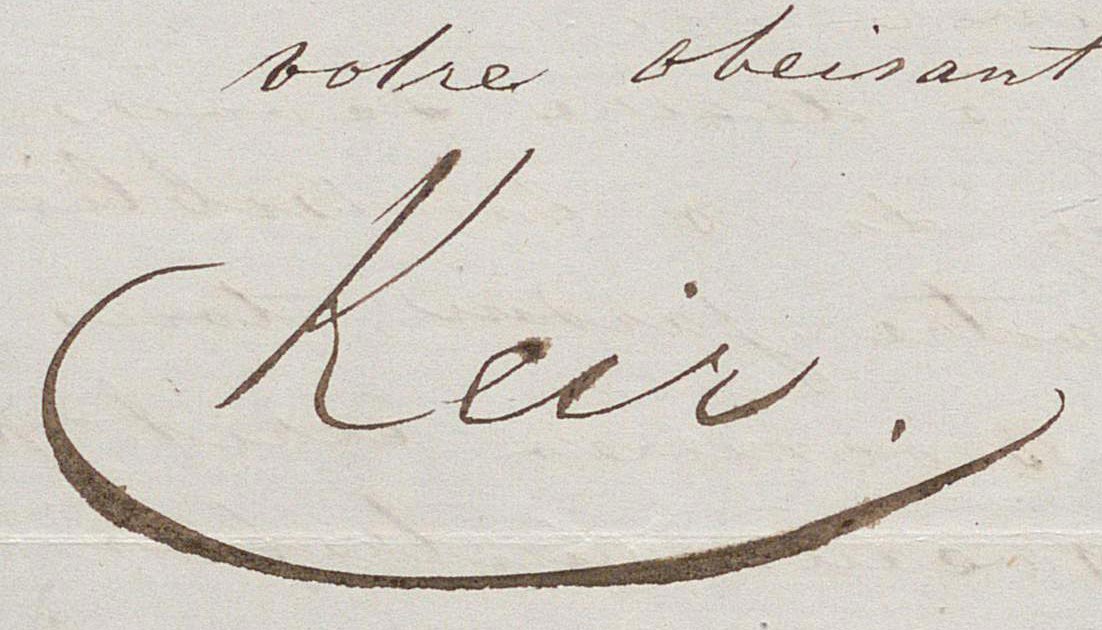 votre obeisant
Keir.